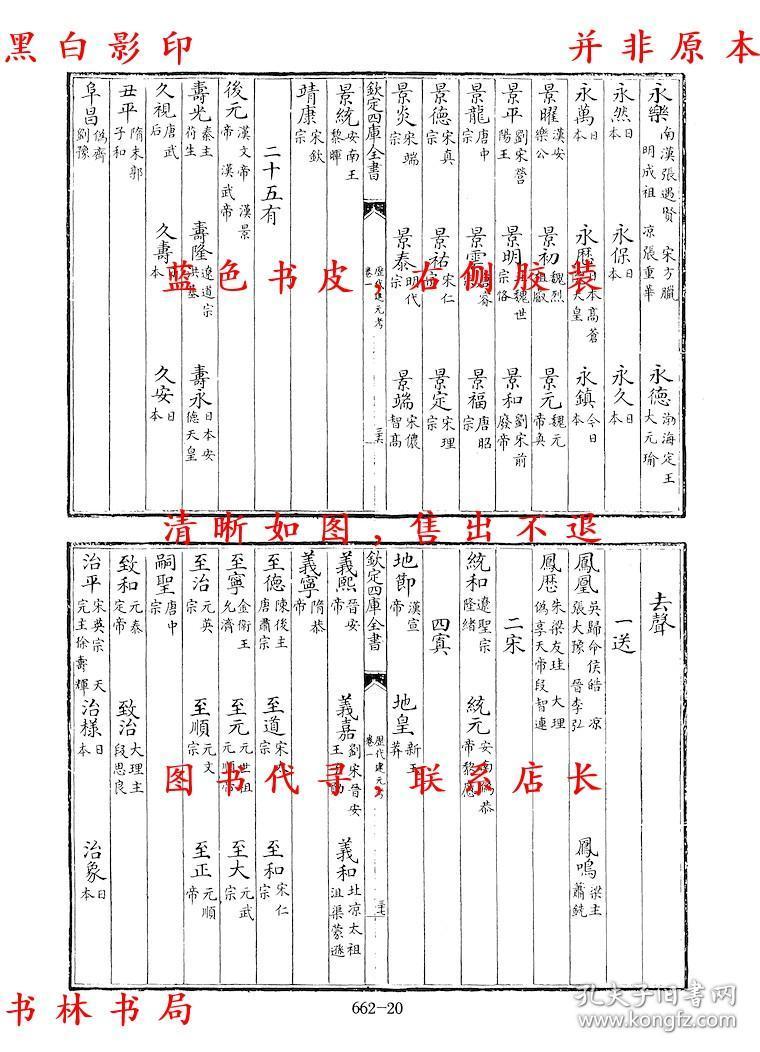 黑白影印
并非原本
永樂 南漢張遇賢 宋方臘 明成祖 涼張重華 永德 渤海定王大元瑜
永然 日本 永保 日本 永久 日本
永萬 日本 永曆 日本高蒼天皇 永鎮 今日本
景曜 漢安樂公 景初 魏烈 景元 魏元帝奐
景平 劉宋營陽王 景明 魏世宗恪 景和 劉宋前廢帝
景龍 唐中宗 景雲 景福 唐昭宗
景德 宋真宗 景祐 宋仁 景定 宋理宗
景炎 宋端宗 景泰 明代宗 景端 宋儂智高
欽定四庫全書 歷代建元考 卷一 三十六
景統 安南王黎暉
靖康 宋欽宗
二十五有
後元 漢文帝 漢景帝 漢武帝
壽光 秦主苻生 壽隆 遼道宗洪基 壽永 日本安德天皇
久視 唐武后 久壽 日本 久安 日本
丑平 隋末郭子和
阜昌 偽齊劉豫
蓝色书皮，右侧胶装
清晰如图，售出不退
去聲
一送
鳳凰 吳歸命侯皓 涼張大豫 晉李弘 鳳鳴 梁主蕭銑
鳳歷 朱梁友珪 大理偽享天帝段智連
二宋
統和 遼聖宗隆緒 統元 安南偽恭帝黎
四寘
地節 漢宣帝 地皇 新王莽
欽定四庫全書 歷代建元考 卷一 三十七
義熙 晉安帝 義嘉 劉宋晉安王 義和 北涼太祖沮渠蒙遜
義寧 隋恭帝
至德 陳後主 唐肅宗 至道 宋 宗 至和 宋仁宗
至寧 金衛王允濟 至元 元世祖 元順帝 至大 元武宗
至治 元英宗 至順 元文宗 至正 元順帝
嗣聖 唐中宗
致和 元泰定帝 致治 大理主段思良
治平 宋英宗 天完主徐壽輝 治樣 日本 治象 日本
图书代寻，联系店长
662-20
书林书局
孔夫子旧书网
www.kongfz.com